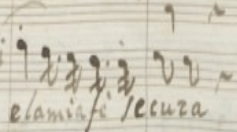 e la mia fé secura